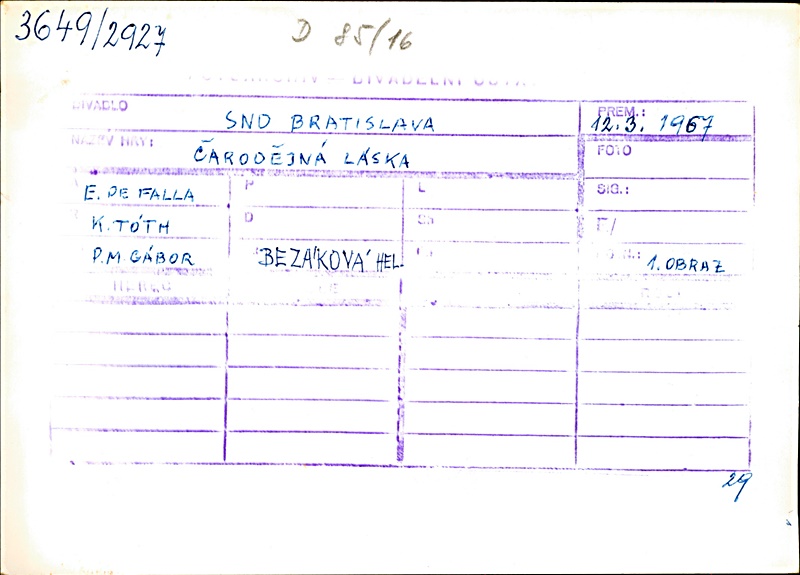 3649/2927
D 85/16
DIVADLO SND BRATISLAVA PREM.: 12.3. 1967
NÁZEV HRY: ČARODĚJNÁ LÁSKA FOTO
E. DE FALLA P L SIG.:
K. TÓTH D F/
P. M. GÁBOR BEZÁKOVÁ HEL. 1. OBRAZ
29